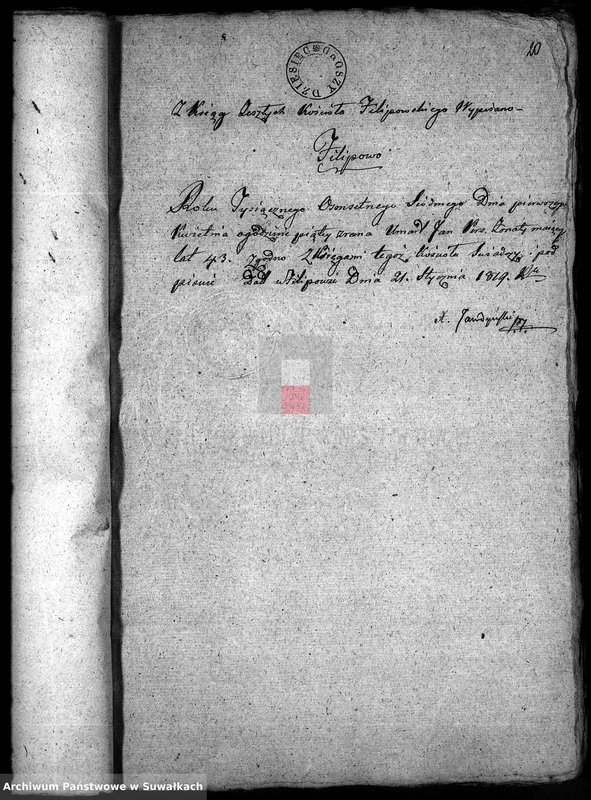 20
DZIESIĘC GROSZY
Z Ksiąg Zeszłych Kościoła Filipowskiego Wypisano
Filipowo
Roku Tysiącznego Osmsetnego Siódmego Dnia pierwszego
Kwietnia o godzinie piąty zrana Umarł Jan Żonaty maiący
lat 43. zgodno z Księgami tegoż Kościoła Swiadczy pod
pisanie Dad w Filipowie Dnia 21. Stycznia 1819. R
X.
Archiwum Państwowe w Suwałkach